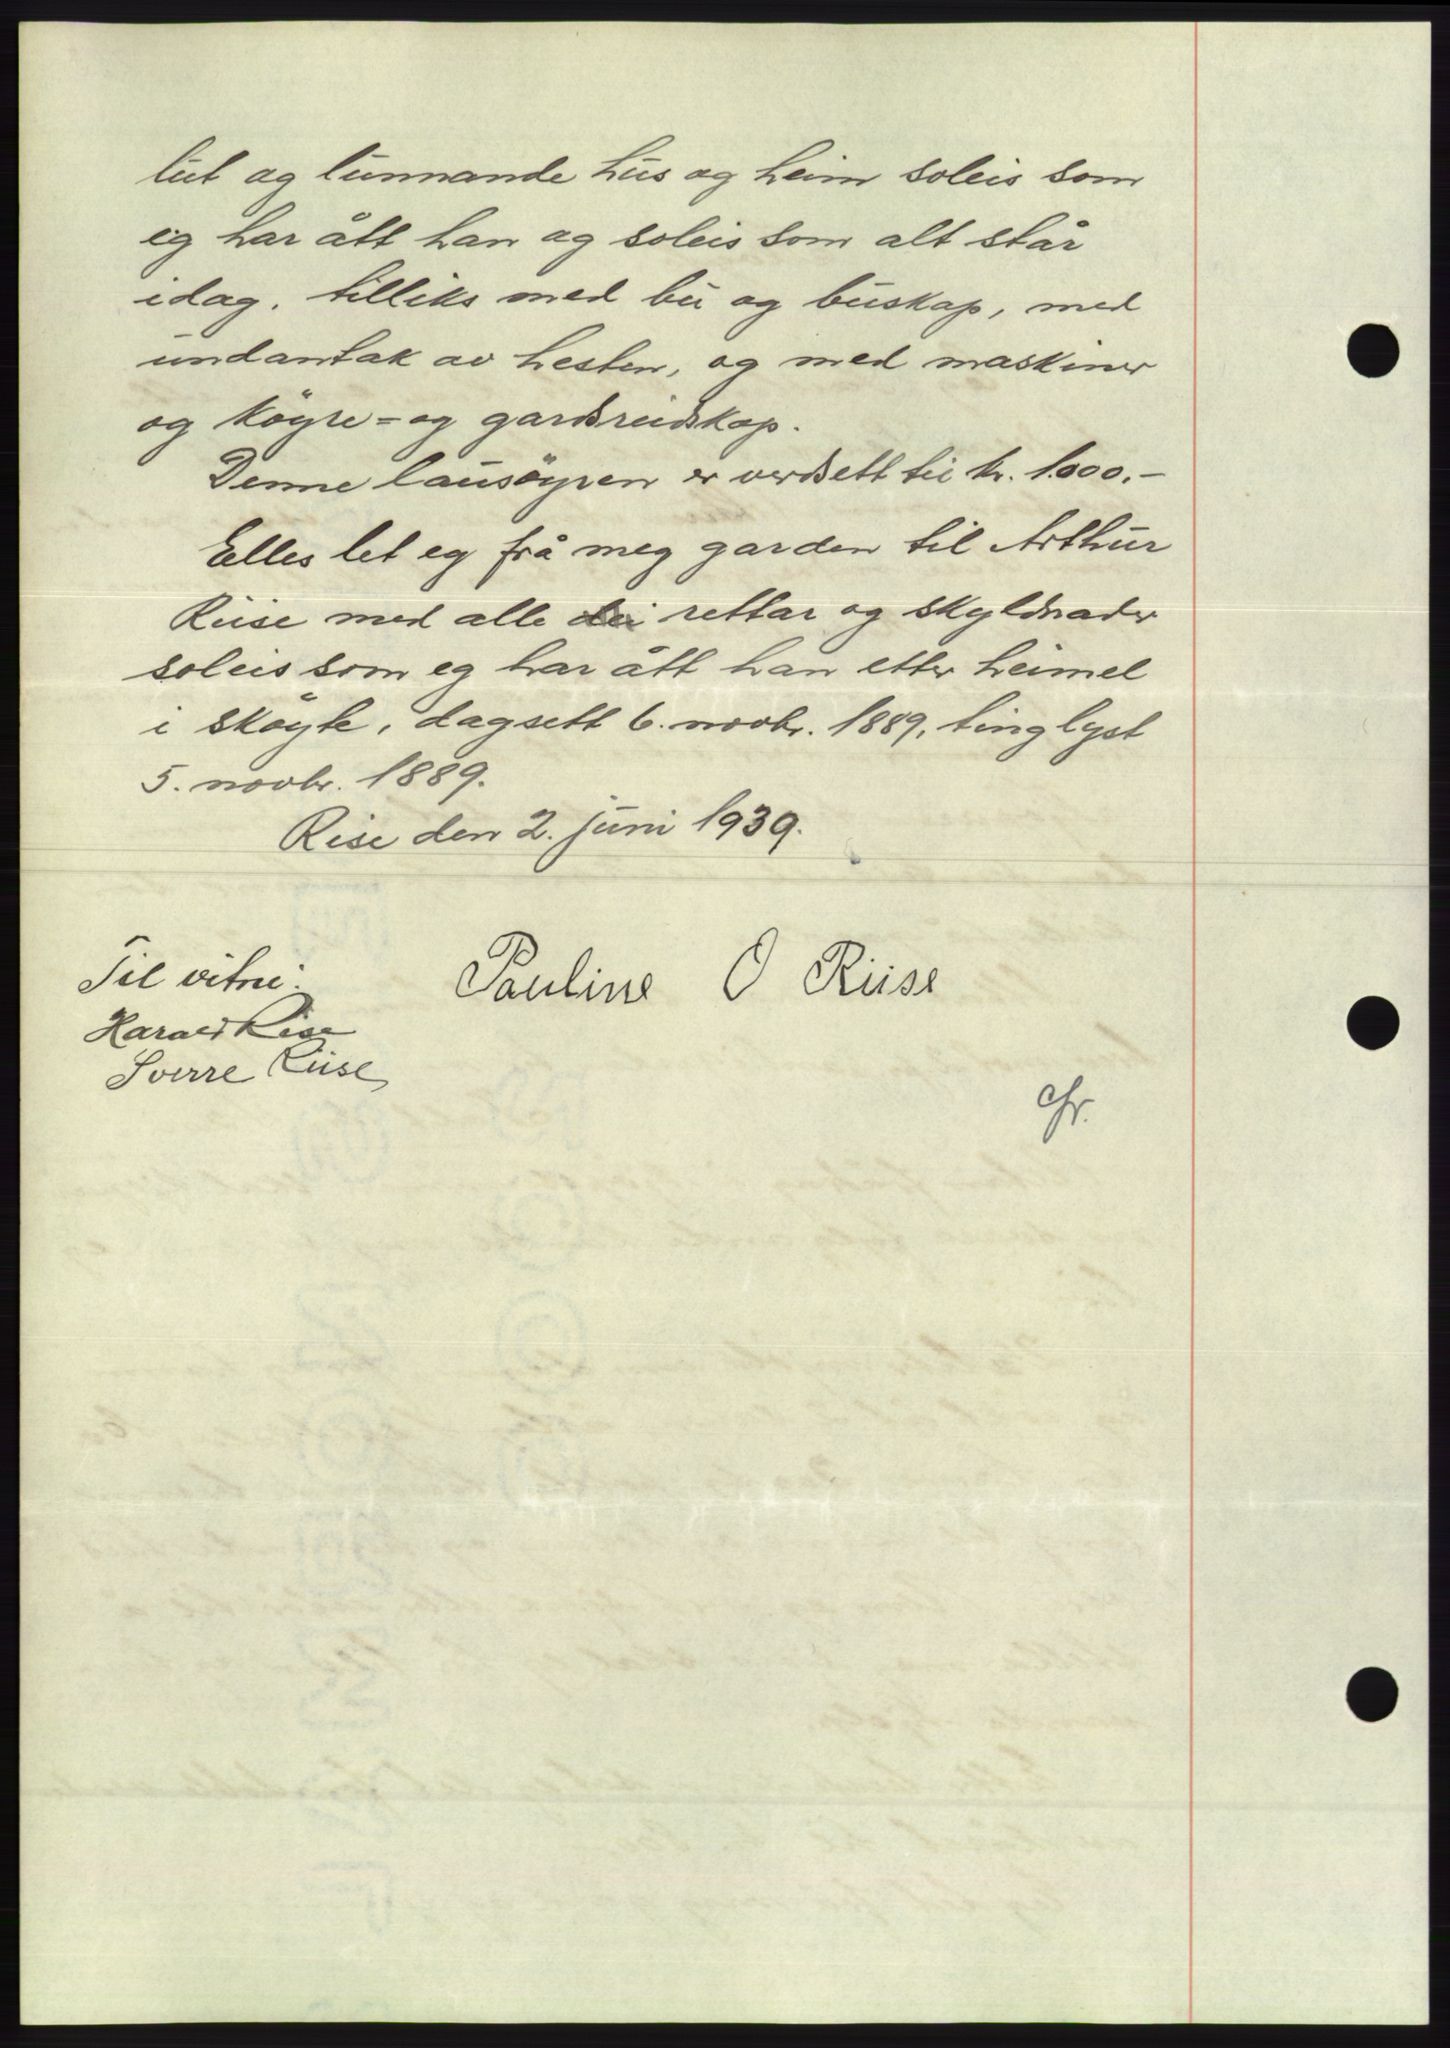 lut og lunnande hus og heim soleis som
eig har ått han og soleis som alt står
idag, tilliks med bu og buskap, med
undantak av hesten, og med maskiner
og köyre- og gardsreidskap.
Denne lausöyren er verdsett til kr. 1.000.-
Elles let eg frå meg garden til Arthur
Riise med alle dei rettar og skyldnader
soleis som eg har ått han etter heimel
i sköyte, dagsett 6. novbr. 1889, tinglyst
5. novbr. 1889.
Rise den 2. juni 1939.
Pauline O Riise
Til vitne:
Harald Rise
Sverre Riise